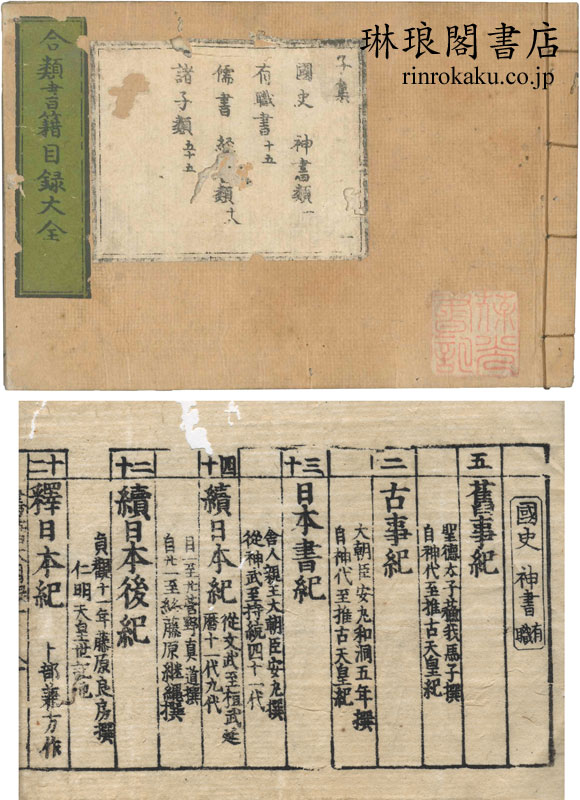 琳琅閣書店
rinrokaku.co.jp
合類書籍目録大全
子集
國史 神書類 一
有職書 十五
儒書 經 類 十八
諸子類 五十五
國史 神書 有職
五 舊事紀
聖德太子蘓我馬子撰
自神代至推古天皇紀
三 古事紀
大朝臣安丸和洞五年撰
自神代至推古天皇紀
三十 日本書紀
舍人親王大朝臣安丸撰
從神武至持統四十一代
四十 續日本紀
從文武至桓武延
曆十一代九代
自一至廿菅野眞道撰
自廿一至終藤原継繩撰
二十 續日本後紀
貞觀十一年藤原良房撰
仁明天皇世記
十二 釋日本紀 卜部兼方作